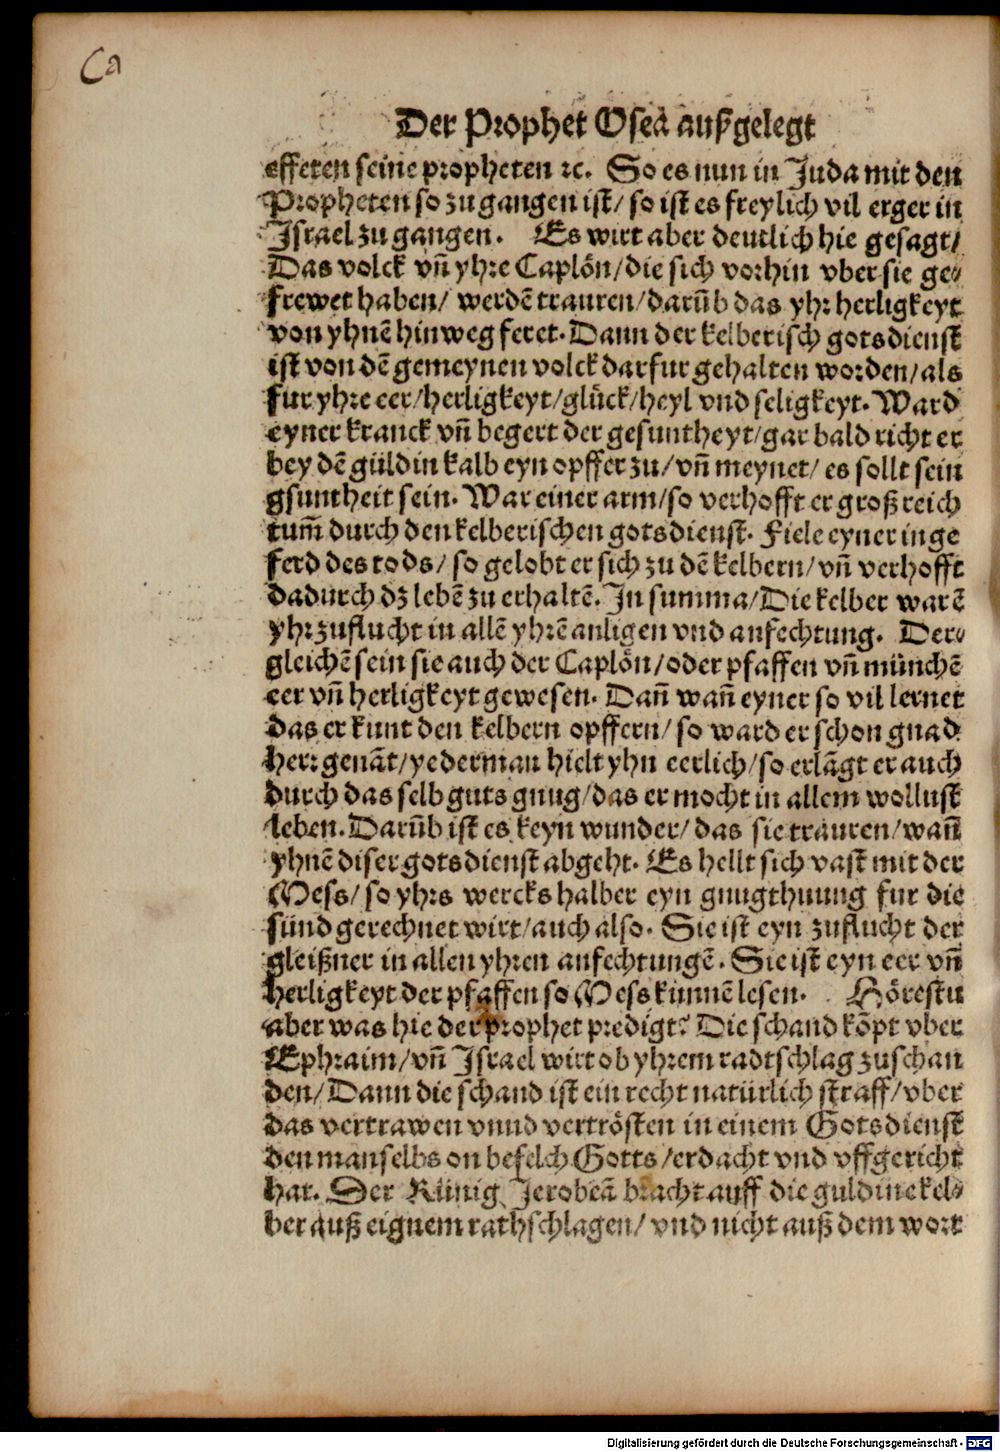 Ca
Der Prophet Osea außgelegt
effeten seine propheten ꝛc. So es nun in Juda mit den
Propheten so zu gangen ist/ so ist es freylich vil erger in
Israel zu gangen. Es wirt aber deutlich hie gesagt/
Das volck vñ yhre Caplön/die sich vorhin vber sie ge⸗
frewet haben/ werdē trauren/darūb das yhr herligkeyt
von yhnē hinweg feret. Dann der kelberisch gotsdienst
ist von dē gemeynen volck darfur gehalten worden/als
fur yhre eer/herligkeyt/glück/heyl vnd seligkeyt. Ward
eyner kranck vñ begert der gesuntheyt/gar bald richt er
bey dē güldin kalb eyn opffer zu/vñ meynet/ es sollt sein
gsuntheit sein. War einer arm/so verhofft er groß reich
tum̄ durch den kelberischen gotsdienst. Fiele eyner in ge
ferd des tods/ so gelobt er sich zu dē kelbern/vñ verhofft
dadurch dz lebē zu erhaltē. In summa/Die kelber warē
yhr zuflucht in allē yhrē anligen vnd anfechtung. Der⸗
gleichē sein sie auch der Caplön/oder pfaffen vñ münchē
eer vñ herligkeyt gewesen. Dañ wañ eyner so vil lernet
das er kunt den kelbern opffern/ so ward er schon gnad
herr genāt/yederman hielt yhn eerlich/so erlāgt er auch
durch das selb guts gnug/das er mocht in allem wollust
leben. Darūb ist es keyn wunder/ das sie trauren/wañ
yhnē diser gotsdienst abgeht. Es hellt sich vast mit der
Mess/ so yhrs wercks halber eyn gnugthuung fur die
sünd gerechnet wirt/auch also. Sie ist eyn zuflucht der
gleißner in allen yhren anfechtungē. Sie ist eyn eer vñ
herligkeyt der pfaffen so Mess künnē lesen. Hörestu
aber was hie der prophet predigt? Die schand kōpt vber
Ephraim/vñ Israel wirt ob yhrem radtschlag zuschan
den/Dann die schand ist ein recht natürlich straff/vber
das vertrawen vnnd vertrösten in einem Gotsdienst
den man selbs on befelch Gotts/erdacht vnd vffgericht
hat. Der Künig Jerobeā bracht auff die guldine kel⸗
ber auß eignem rathschlagen/ vnd nicht auß dem wort
Digitalisierung gefördert durch die Deutsche Forschungsgemeinschaft - DFG